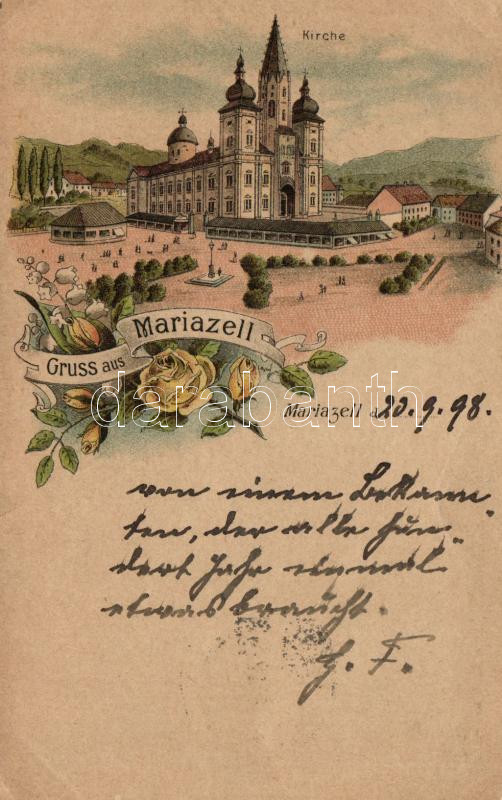 Kirche
Gruss aus Mariazell
darabanth
Mariazell a 20.9.98.
von einem Bekann„
ten, der alle hun„
dert Jahr einmal
etwas braucht.
H. F.